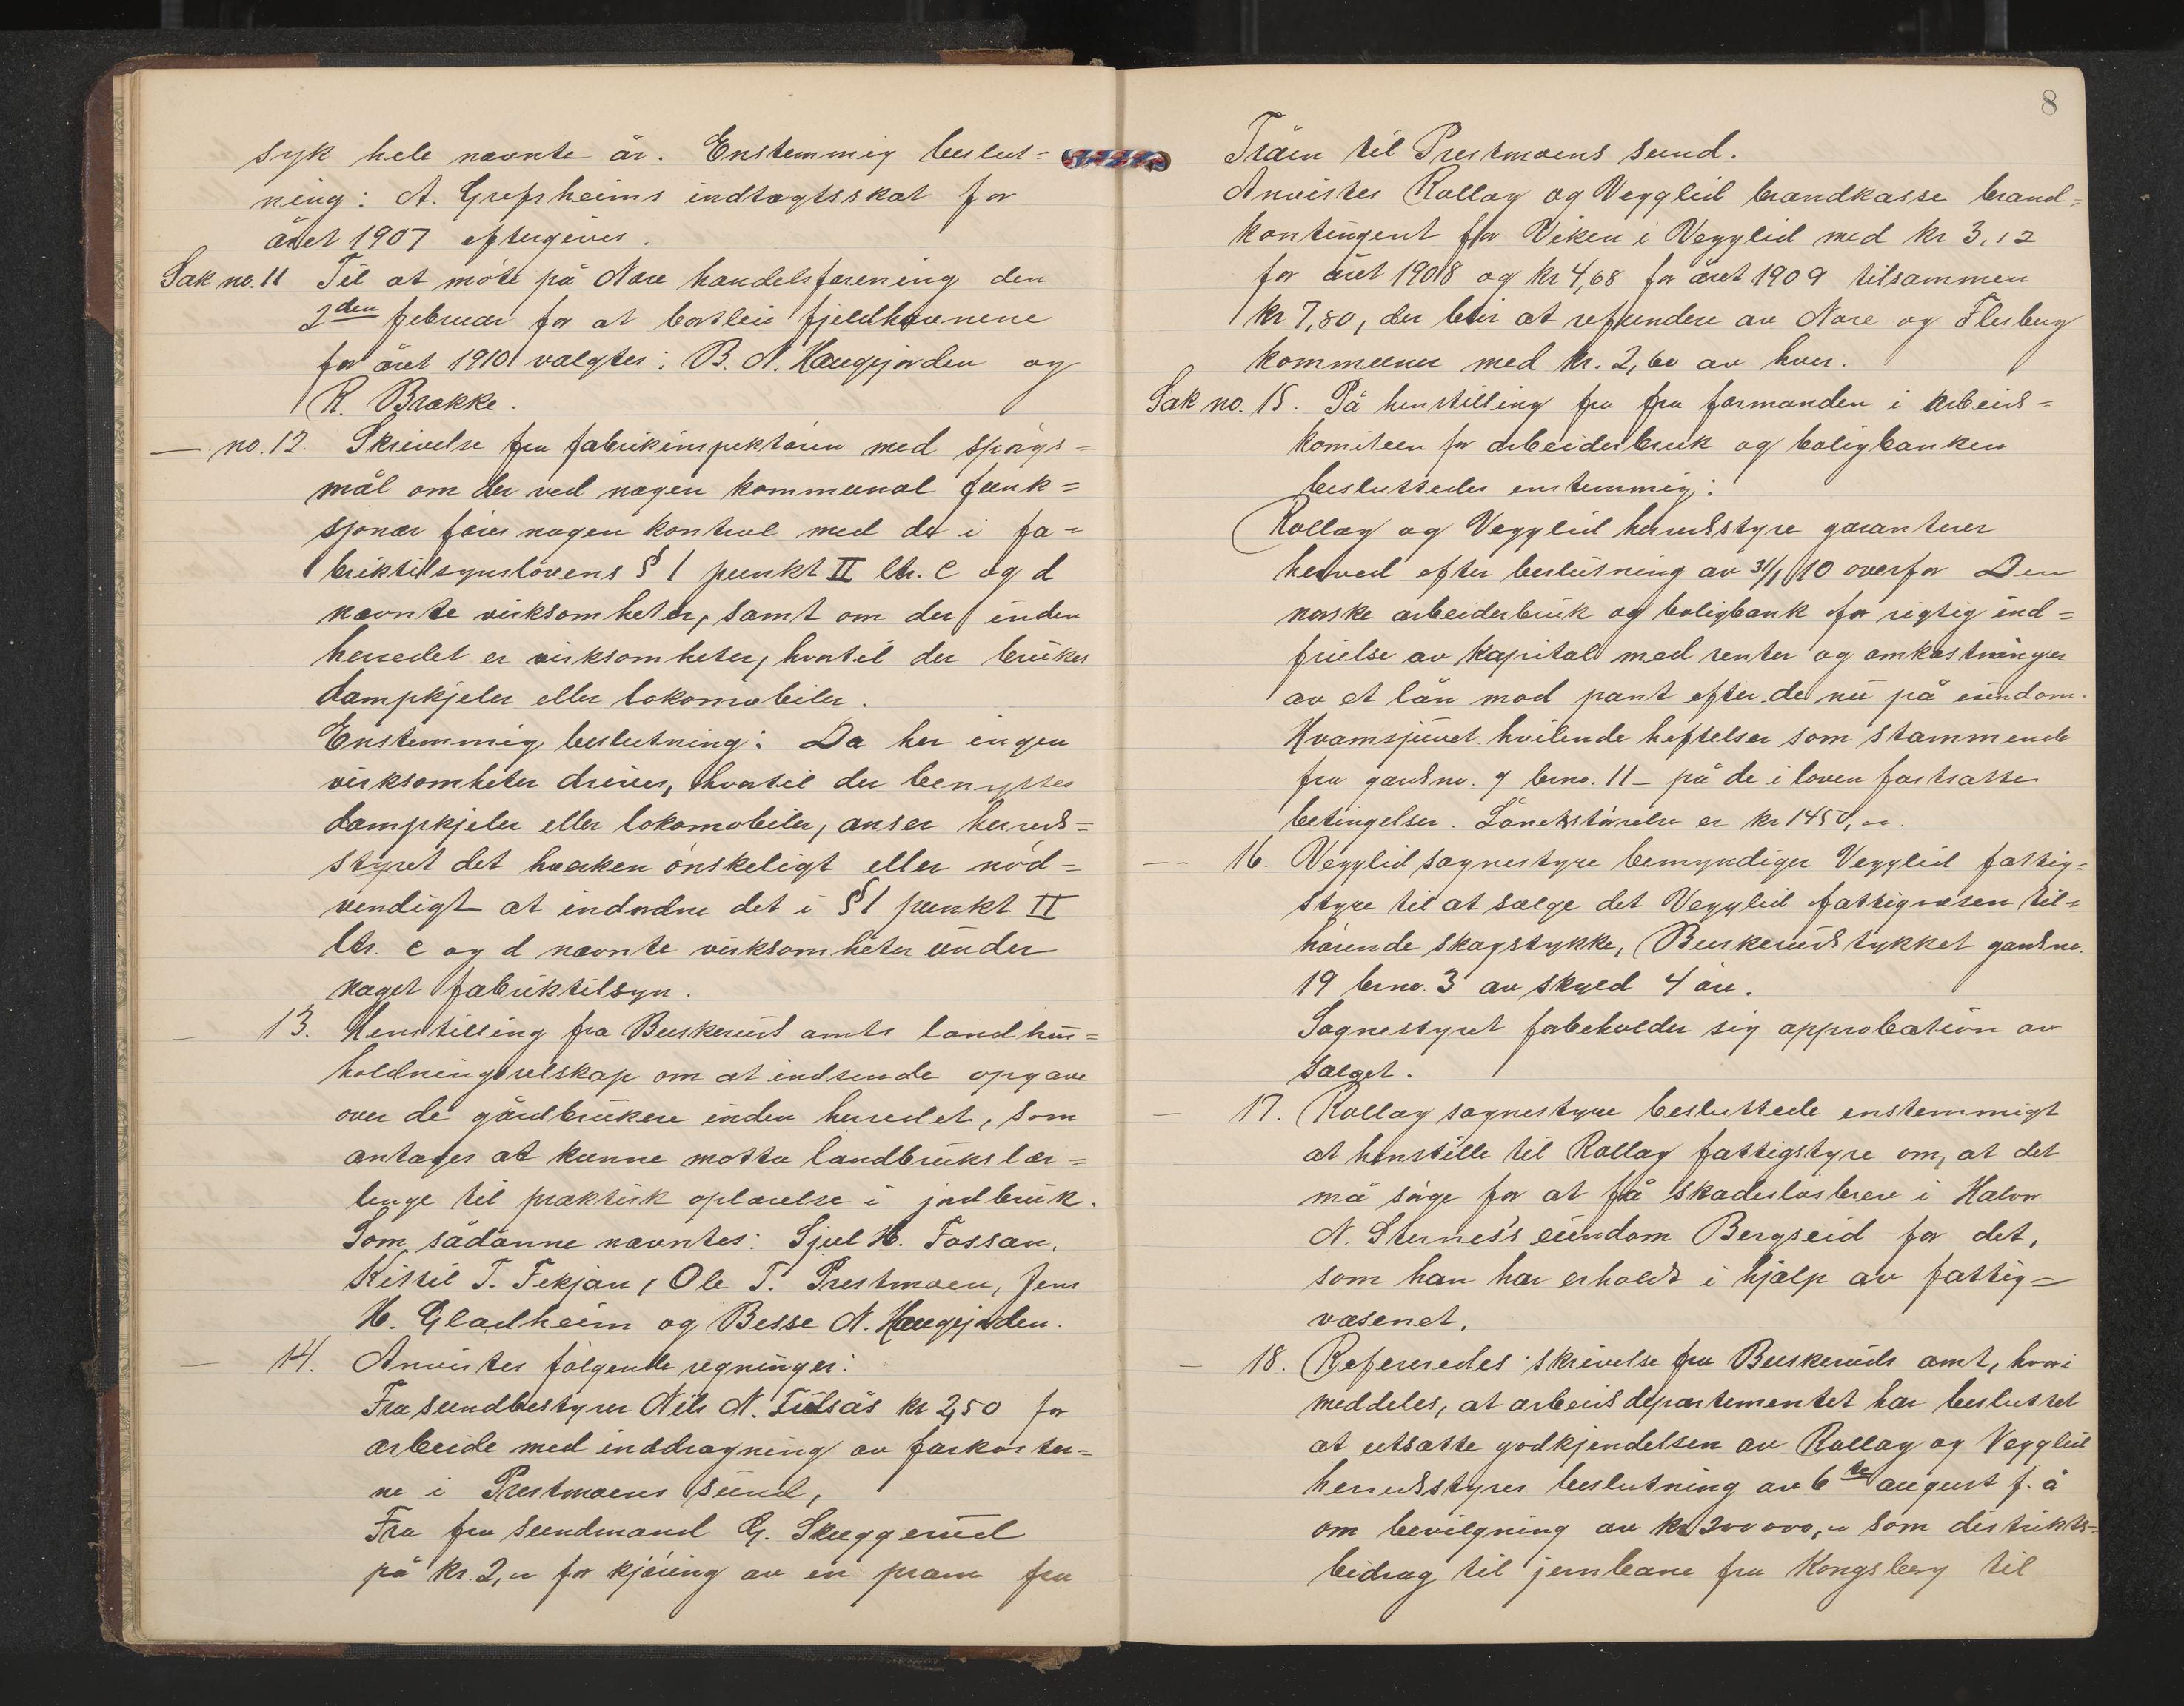 syk hele nævnte år. Enstemmig beslut=
ning: A. Grefsheims indtægtsskat for
året 1907 eftergives.
Sak no. 11 Til at møte på Nore handelsforening den
2den februar for at bortleie fjeldhavnene
for året 1910 valgtes: B. N. Haugjorden og
R. Brække.
— no. 12. Skrivelse fra fabrikinspektøren med spørgs=
mål om der ved nogen kommunal funk=
sjonær føres nogen kontrol med de i fa=
briktilsynslovens § 1 punkt II ltr. c og d
nævnte virksomheter, samt om der inden
herredet er virksomheter, hvortil der brukes
dampkjeler eller lokomobiler.
Enstemmig beslutning: Da her ingen
virksomheter drives, hvortil der benyttes
dampkjeler eller lokomobiler, anser herreds=
styret det hverken ønskeligt eller nød=
vendigt at indordne det i § 1 punkt II
ltr. c og d nævnte virksomheter under
noget fabriktilsyn.
— 13. Henstilling fra Buskerud amts landhus=
holdningsselskap om at indsende opgave
over de gårdbrukere inden herredet, som
antages at kunne motta landbrukslær=
linge til praktisk oplærelse i jordbruk.
Som sådanne nævntes: Sjul H. Fossan,
Kittil T. Fekjan, Ole T. Prestmoen, Jens
H. Gladheim og Besse N. Haugjorden.
— 14. Anvistes følgende regninger:
Fra sundbestyrer Nils N. kr 2,50 for
arbeide med inddragning av farkoster=
ne i Prestmoens sund,
Fra fra sundmand G. Skuggerud
på kr. 2," for kjøring av en pram fra
8
Tråen til Prestmoens sund.
Anvistes Rollag og Vegglid brandkasse brand=
kontingent for Viken i Vegglid med kr 3,12
for året 1908 og kr 4,68 for året 1909 tilsammen
kr 7,80, der blir at refundere av Nore og Flesberg
kommuner med kr. 2,60 av hver.
Sak no. 15. På henstilling fra fra formanden i arbeids=
komiteen for arbeiderbruk og boligbanken
besluttedes enstemmig:
Rollag og Vegglid herredsstyre garanterer
herved efter beslutning av 31/1 10 overfor Den
norske arbeiderbruk og boligbank for rigtig ind=
frielse av kapital med renter og omkostninger
av et lån mod pant efter de nu på eiendom.
Hvamsjuvet hvilende heftelser som stammende
fra gardsno. 9 brno. 11 – på de i loven fastsatte
betingelser. Lånets størrelse er kr 1450,"".
— 16. Vegglid sognestyre bemyndiger Vegglid fattig=
styre til at sælge det Vegglid fattigvæsen til=
hørende skogstykke, Buskerudstykket gardsno.
19 brno. 3 av skyld 4 øre.
Sognestyret forbeholder sig approbation av
salget.
— 17. Rollag sognestyre besluttede enstemmigt
at henstille til Rollag fattigstyre om, at det
må sørge for at få skadesløsbrev i Halvor
N. Sternes's eiendom Bergseid for det,
som han har erholdt i hjælp av fattig=
væsenet.
— 18. Refereredes skrivelse fra Buskeruds amt, hvori
meddeles, at arbeidsdepartementet har besluttet
at utsætte godkjendelsen av Rollag og Vegglid
herredsstyres beslutning av 6te august f. å
om bevilgning av kr 200 000," som distrikts=
bidrag til jernbane fra Kongsberg til